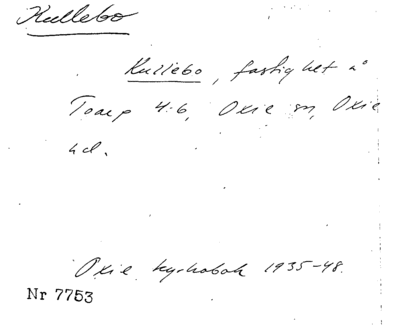 Kullebo
Kullebo, fastighet å
Toarp 4:6, Oxie sn, Oxie
hd.
Oxie kyrkobok 1935-48.
Nr 7753